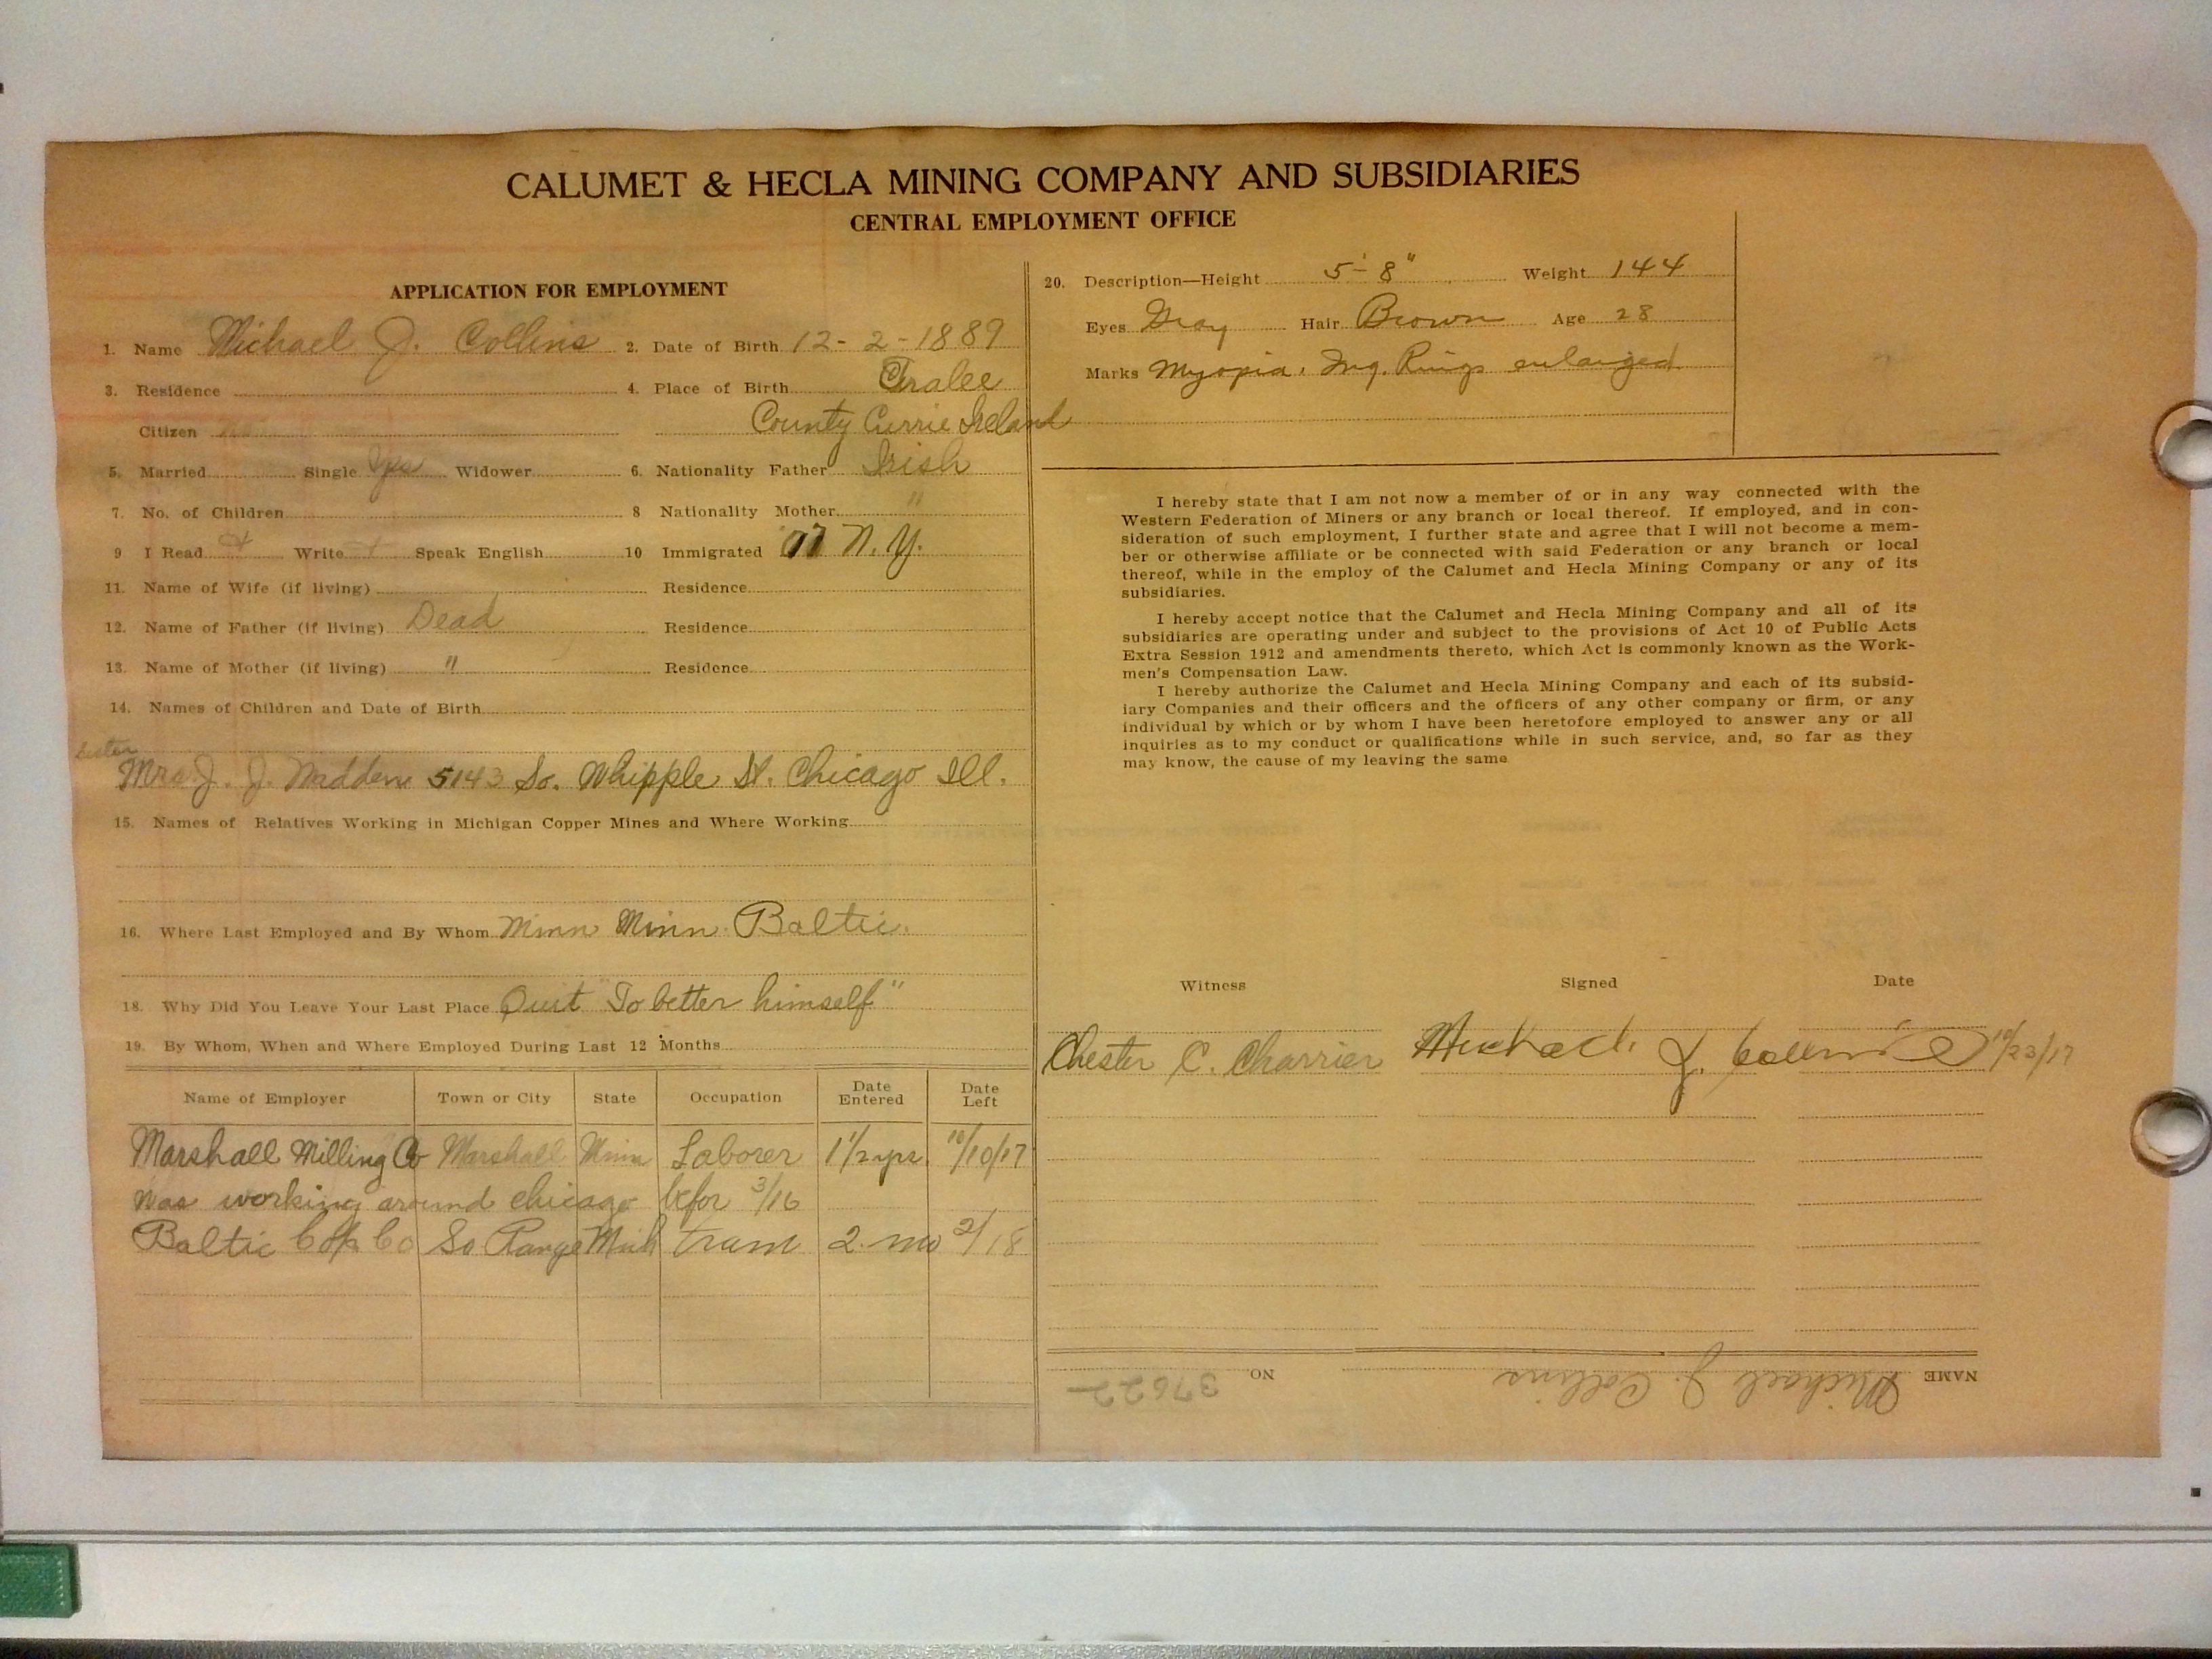 CALUMET & HECLA MINING COMPANY AND SUBSIDIARIES
CENTRAL EMPLOYMENT OFFICE
APPLICATION FOR EMPLOYMENT
1. Name Michael J. Collins 2. Date of Birth 12-2-1889
3. Residence 4. Place of Birth Tralee
Citizen County Currie Ireland
5. Married Single yes Widower 6. Nationality Father Irish
7. No. of Children 8 Nationality Mother "
9 I Read + Write + Speak English 10 Immigrated N.Y.
11. Name of Wife (if living) Residence
12. Name of Father (if living) Dead Residence
13. Name of Mother (if living) " Residence
14. Names of Children and Date of Birth
Sister
Mrs. J. J. Madden 5143 So. Whipple St. Chicago Ill.
15. Names of Relatives Working in Michigan Copper Mines and Where Working
16. Where Last Employed and By Whom Minn Minn. Baltic.
18. Why Did You Leave Your Last Place Quit "To better himself"
19. By Whom, When and Where Employed During Last 12 Months
Name of Employer Town or City State Occupation Date Entered Date Left
Marshall Milling Co Marshall Minn Laborer 1 1/2 yrs. 10/10/17
was working around chicago befor 3/16
Baltic Cop Co So Range Mich tram 2 mo 2/18
20. Description—Height 5'-8" Weight 144
Eyes Gray Hair Brown Age 28
Marks Myopia, Ing. Rings enlarged
I hereby state that I am not now a member of or in any way connected with the
Western Federation of Miners or any branch or local thereof. If employed, and in con-
sideration of such employment, I further state and agree that I will not become a mem-
ber or otherwise affiliate or be connected with said Federation or any branch or local
thereof, while in the employ of the Calumet and Hecla Mining Company or any of its
subsidiaries.
I hereby accept notice that the Calumet and Hecla Mining Company and all of its
subsidiaries are operating under and subject to the provisions of Act 10 of Public Acts
Extra Session 1912 and amendments thereto, which Act is commonly known as the Work-
men's Compensation Law.
I hereby authorize the Calumet and Hecla Mining Company and each of its subsid-
iary Companies and their officers and the officers of any other company or firm, or any
individual by which or by whom I have been heretofore employed to answer any or all
inquiries as to my conduct or qualifications while in such service, and, so far as they
may know, the cause of my leaving the same.
Witness Signed Date
Chester C. Charrier Michael J. Collins 10/23/17
NAME Michael J. Collins NO. 37622